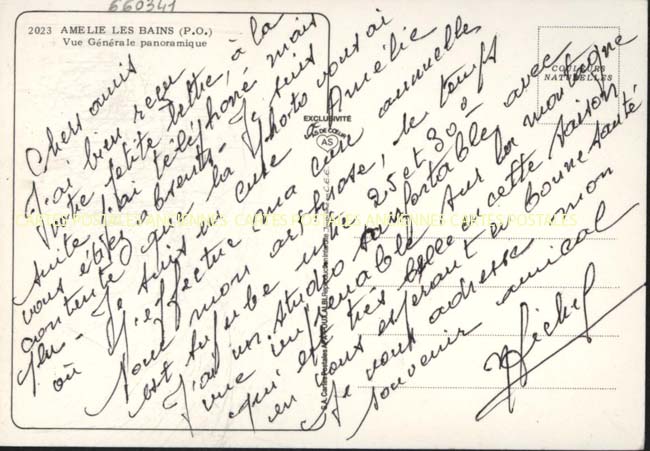 660341
2023 AMELIE LES BAINS (P.O.)
Vue Générale panoramique
EXCLUSIVITÉ
AS
COULEURS
NATURELLES
Chers amis
J'ai bien reçu
votre petite lettre, à la
suite j'ai téléphoné mais
vous étiez absents. Je suis
contente que la photo vous ai
plu. Je suis en cure à Amélie
où j'effectue ma cure annuelle
pour mon arthrose, le temps
est superbe entre 25 et 30°
J'ai un studio confortable, avec
vue imprenable sur la montagne
qui est très belle en cette saison
en vous espérant en bonne santé
Je vous adresse mon
souvenir amical
Michel
CARTES POSTALES ANCIENNES CARTES POSTALES ANCIENNES CARTES POSTALES